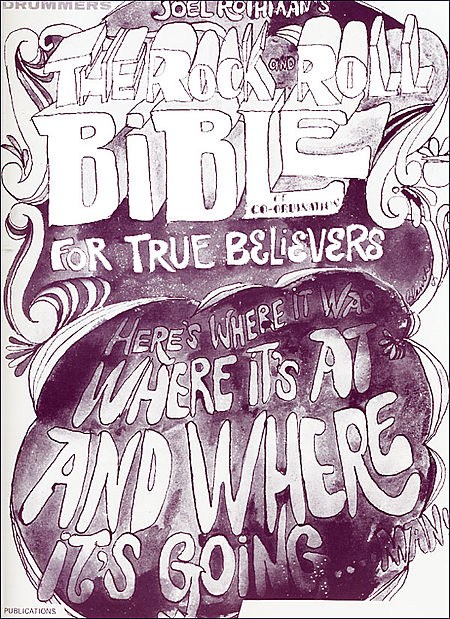 DRUMMERS
JOEL ROTHMAN'S
THE ROCK AND ROLL
BiBLE
OF
CO-ORDINATION
FOR TRUE BELiEVERS
HERE'S WHERE IT WAS
WHERE IT'S AT
AND WHERE
iT'S GOING... 'MAN!
PUBLICATIONS